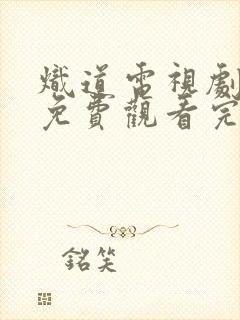 熾道電視劇
免費觀看完
銘笑